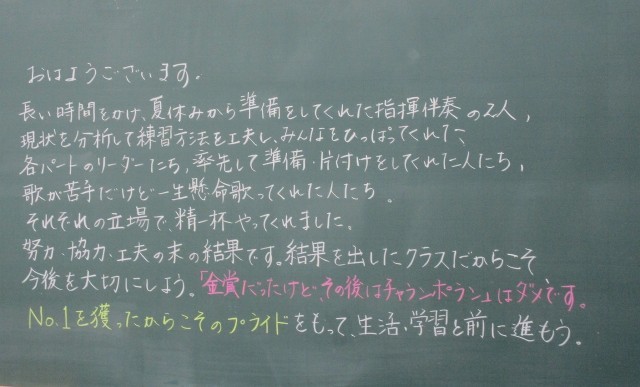 おはようございます。
長い時間をかけ、夏休みから準備をしてくれた指揮伴奏の2人，
現状を分析して練習方法を工夫し、みんなをひっぱってくれた、
各パートのリーダーたち，率先して準備・片付けをしてくれた人たち，
歌が苦手だけど一生懸命歌ってくれた人たち。
それぞれの立場で、精一杯やってくれました。
努力・協力・工夫の末の結果です。結果を出したクラスだからこそ
今後を大切にしよう。「金賞だったけど、その後はチャランポラン」はダメです。
No.1を獲ったからこそのプライドをもって、生活・学習と前に進もう。